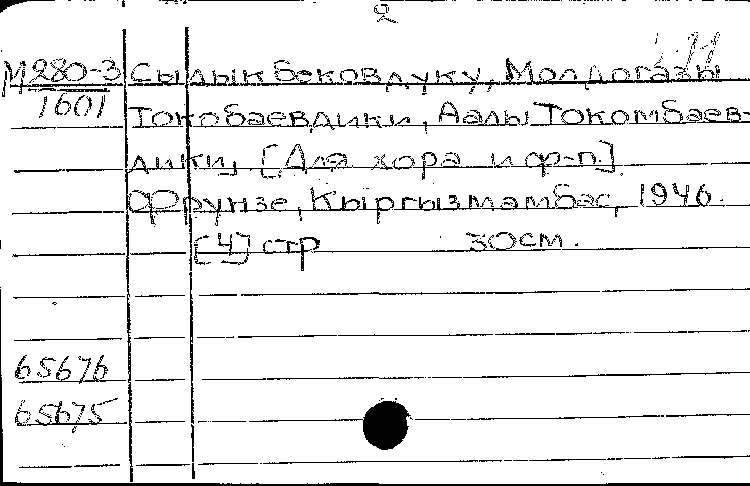 2
М280-3 Сыдыкбековдуку, Молдогазы
1601 Токобаевдики, Аалы Токомбаев-
дики, [Для хора и ф-п.]
Фрунзе, Кыргызмамбас, 1946.
[4] стр 30см.
65676
65675